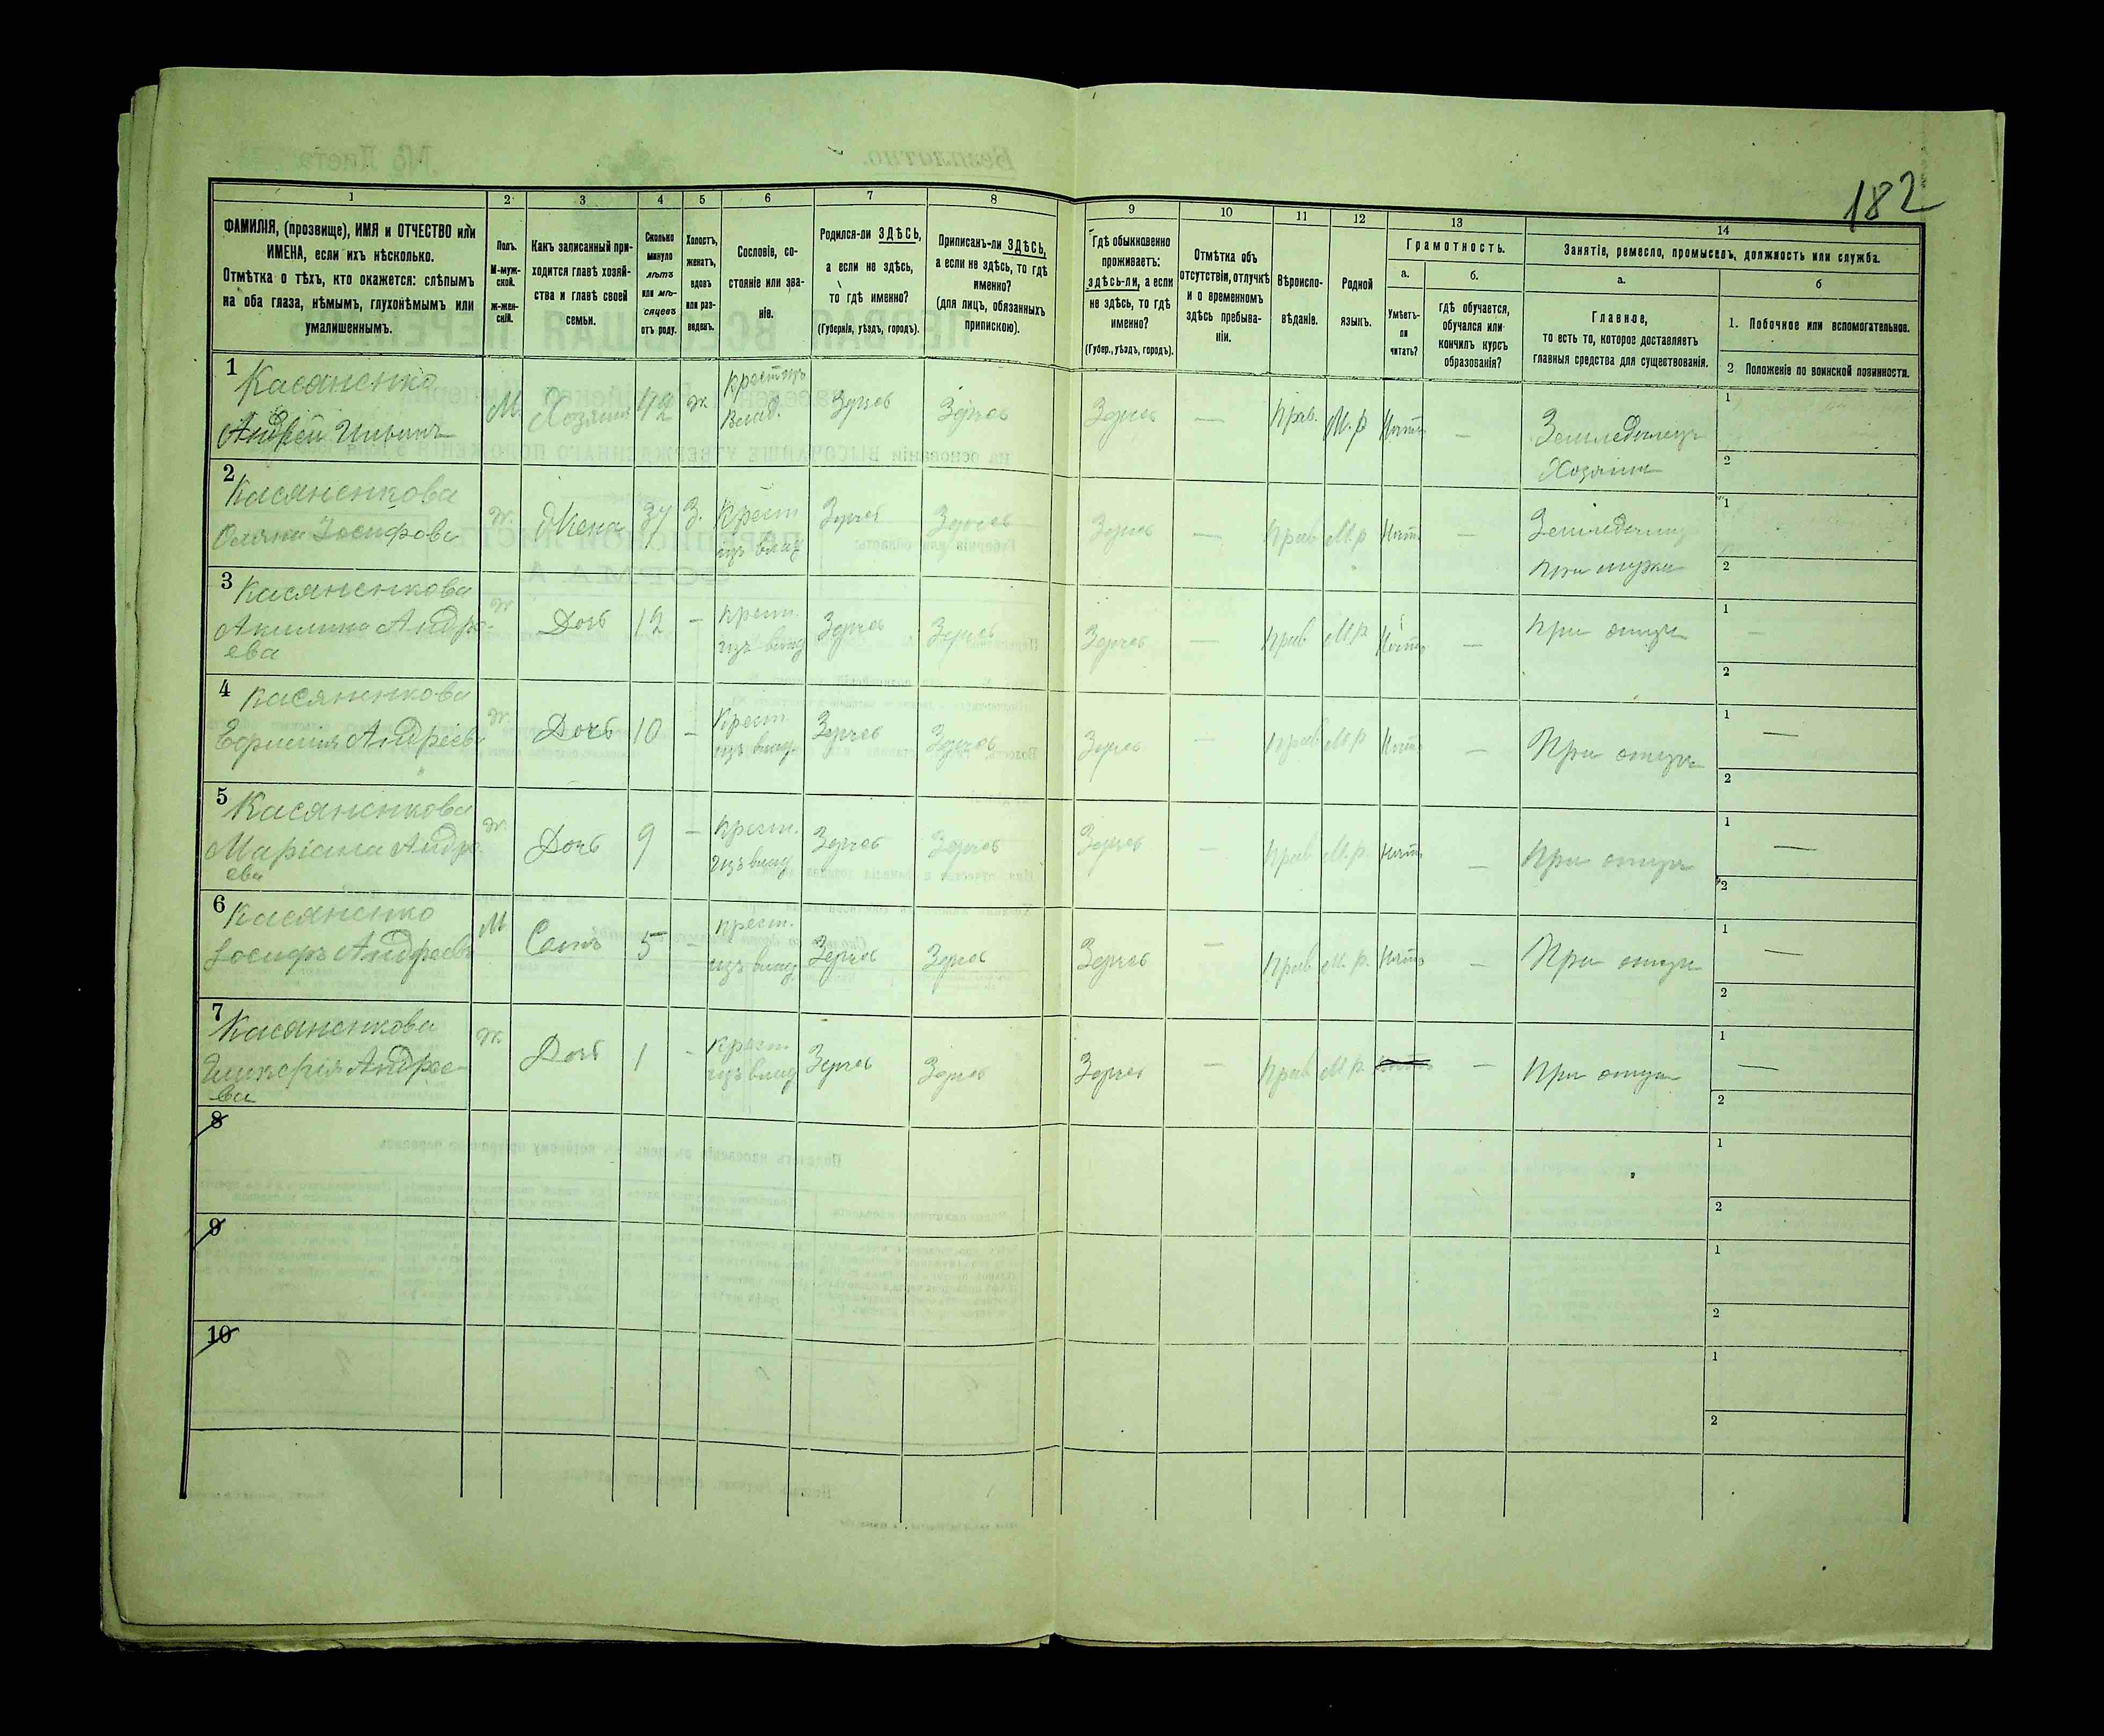 182
1 2 3 4 5 6 7 8 9 10 11 12 13 14
ФАМИЛІЯ, (прозвище), ИМЯ и ОТЧЕСТВО или
ИМЕНА, если ихъ нѣсколько.
Отмѣтка о тѣхъ, кто окажется: слѣпымъ
на оба глаза, нѣмымъ, глухонѣмымъ или
умалишеннымъ.
Полъ.
М-муж-
ской.
Ж-жен-
скій.
Какъ записанный при-
ходится главѣ хозяй-
ства и главѣ своей
семьи.
Сколько
минуло
лѣтъ
или мѣ-
сяцевъ
отъ роду.
Холостъ,
женатъ,
вдовъ
или раз-
веденъ.
Сословіе, со-
стояніе или зва-
ніе.
Родился-ли ЗДѢСЬ,
а если не здѣсь,
то гдѣ именно?
(Губернія, уѣздъ, городъ).
Приписанъ-ли ЗДѢСЬ,
а если не здѣсь, то гдѣ
именно?
(для лицъ, обязанныхъ
припискою).
Гдѣ обыкновенно
проживаетъ:
здѣсь-ли, а если
не здѣсь, то гдѣ
именно?
(Губер., уѣздъ, городъ).
Отмѣтка объ
отсутствіи, отлучкѣ
и о временномъ
здѣсь пребыва-
ніи.
Вѣроиспо-
вѣданіе.
Родной
языкъ.
Грамотность.
а.
Умѣетъ-
ли
читать?
б.
гдѣ обучается,
обучался или
кончилъ курсъ
образованія?
Занятіе, ремесло, промыселъ, должность или служба.
а.
Главное,
то есть то, которое доставляетъ
главныя средства для существованія.
б
1. Побочное или вспомогательное.
2 Положеніе по воинской повинности.
1 Касяненко
Андрей Ильинъ
М. Хозяинъ 42 ж Крестьян Влад. Здѣсь Здѣсь Здѣсь — Прав. М. р Нѣтъ — Земледѣлецъ
Хозяинъ
1
2
2 Касяненкова
Іосифова
Ж. Жена 37 З. Крест изъ влад Здѣсь Здѣсь Здѣсь — Прав М. р Нѣтъ — Земледѣлец
при мужѣ
1
2
3 Касяненкова
Акилина Андре-
ева
Ж Дочь 12 — Крест. изъ влад Здѣсь Здѣсь Здѣсь — Прав М. р Нѣтъ — При отцѣ
1 —
2
4 Касяненкова
Андреева
Ж. Дочь 10 — Крест изъ влад. Здѣсь Здѣсь Здѣсь — Прав М р Нѣтъ — При отцѣ
1 —
2
5 Касяненкова
Маріана Андре-
ева
Ж. Дочь 9 — Крест. изъ влад Здѣсь Здѣсь Здѣсь — Прав М. р. Нѣтъ — При отцѣ
1 —
2
6 Касяненко
Іосифъ Андреевъ
М Сынъ 5 — Крест. изъ влад. Здѣсь Здѣсь Здѣсь — Прав М. р. Нѣтъ — При отцѣ
1 —
2
7 Касяненкова
Андре-
ева
Ж. Дочь 1 - Крест. изъ влад Здѣсь Здѣсь Здѣсь — Прав М р. — При отцѣ
1 —
2
8
1
2
9
1
2
10
1
2